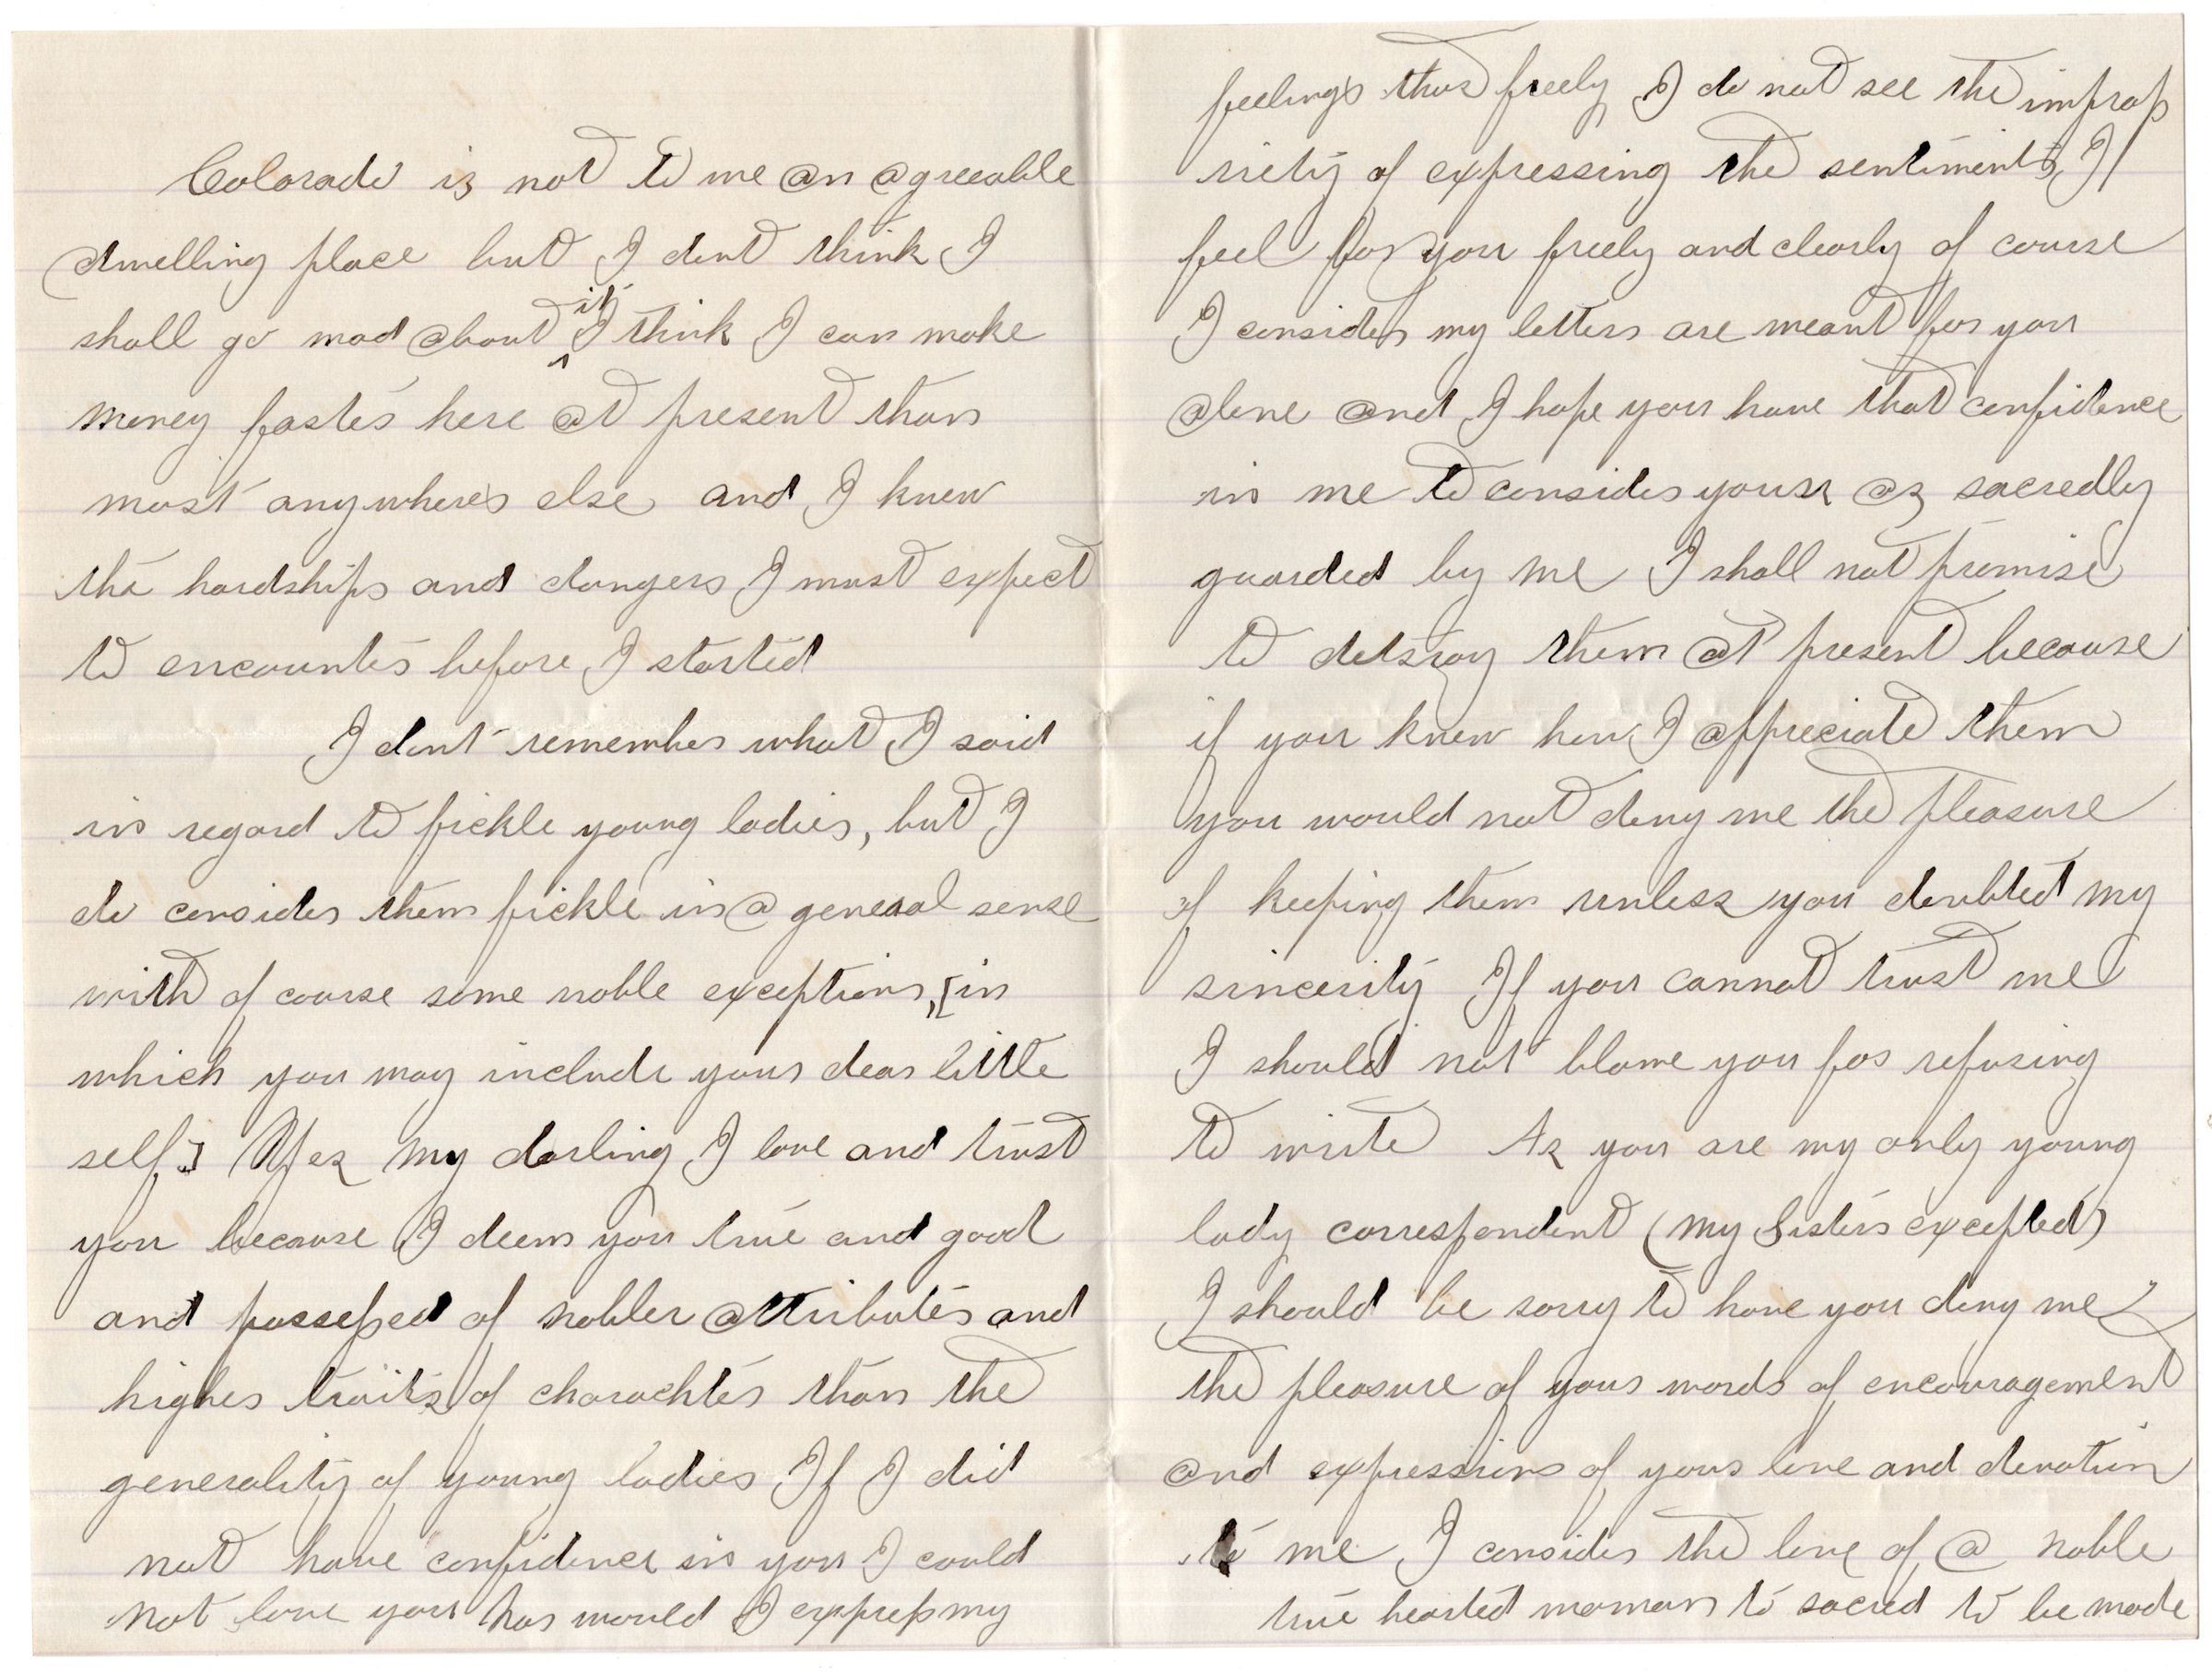 Colorado is not to me an agreeable
dwelling place but I dont think I
shall go mad about it I think I can make
money faster here at present than
most anywheres else and I knew
the hardships and dangers I must expect
to encounter before I started
I dont remember what I said
in regard to fickle young ladies, but I
do consider them fickle in a general sense
with of course some noble exceptions, [in
which you may include your dear little
self] Yes my darling I love and trust
you because I deem you true and good
and possessed of nobler attributes and
higher traits of charachter than the
generality of young ladies If I did
not have confidence in you I could
not love you nor would I express my
feelings thus freely I do not see the improp
riety of expressing the sentiments I
feel for you freely and clearly of course
I consider my letters are meant for you
alone and I hope you have that confidence
in me to consider yours as sacredly
guarded by me I shall not promise
to detsroy them at present because
if you knew how I appreciate them
you would not deny me the pleasure
of keeping them unless you doubted my
sincerity If you cannot trust me
I should not blame you for refusing
to write As you are my only young
lady correspondent (my Sisters excepted)
I should be sorry to have you deny me
the pleasure of your words of encouragement
and expressions of your love and devotion
to me I consider the love of a noble
true hearted woman to sacred to be made